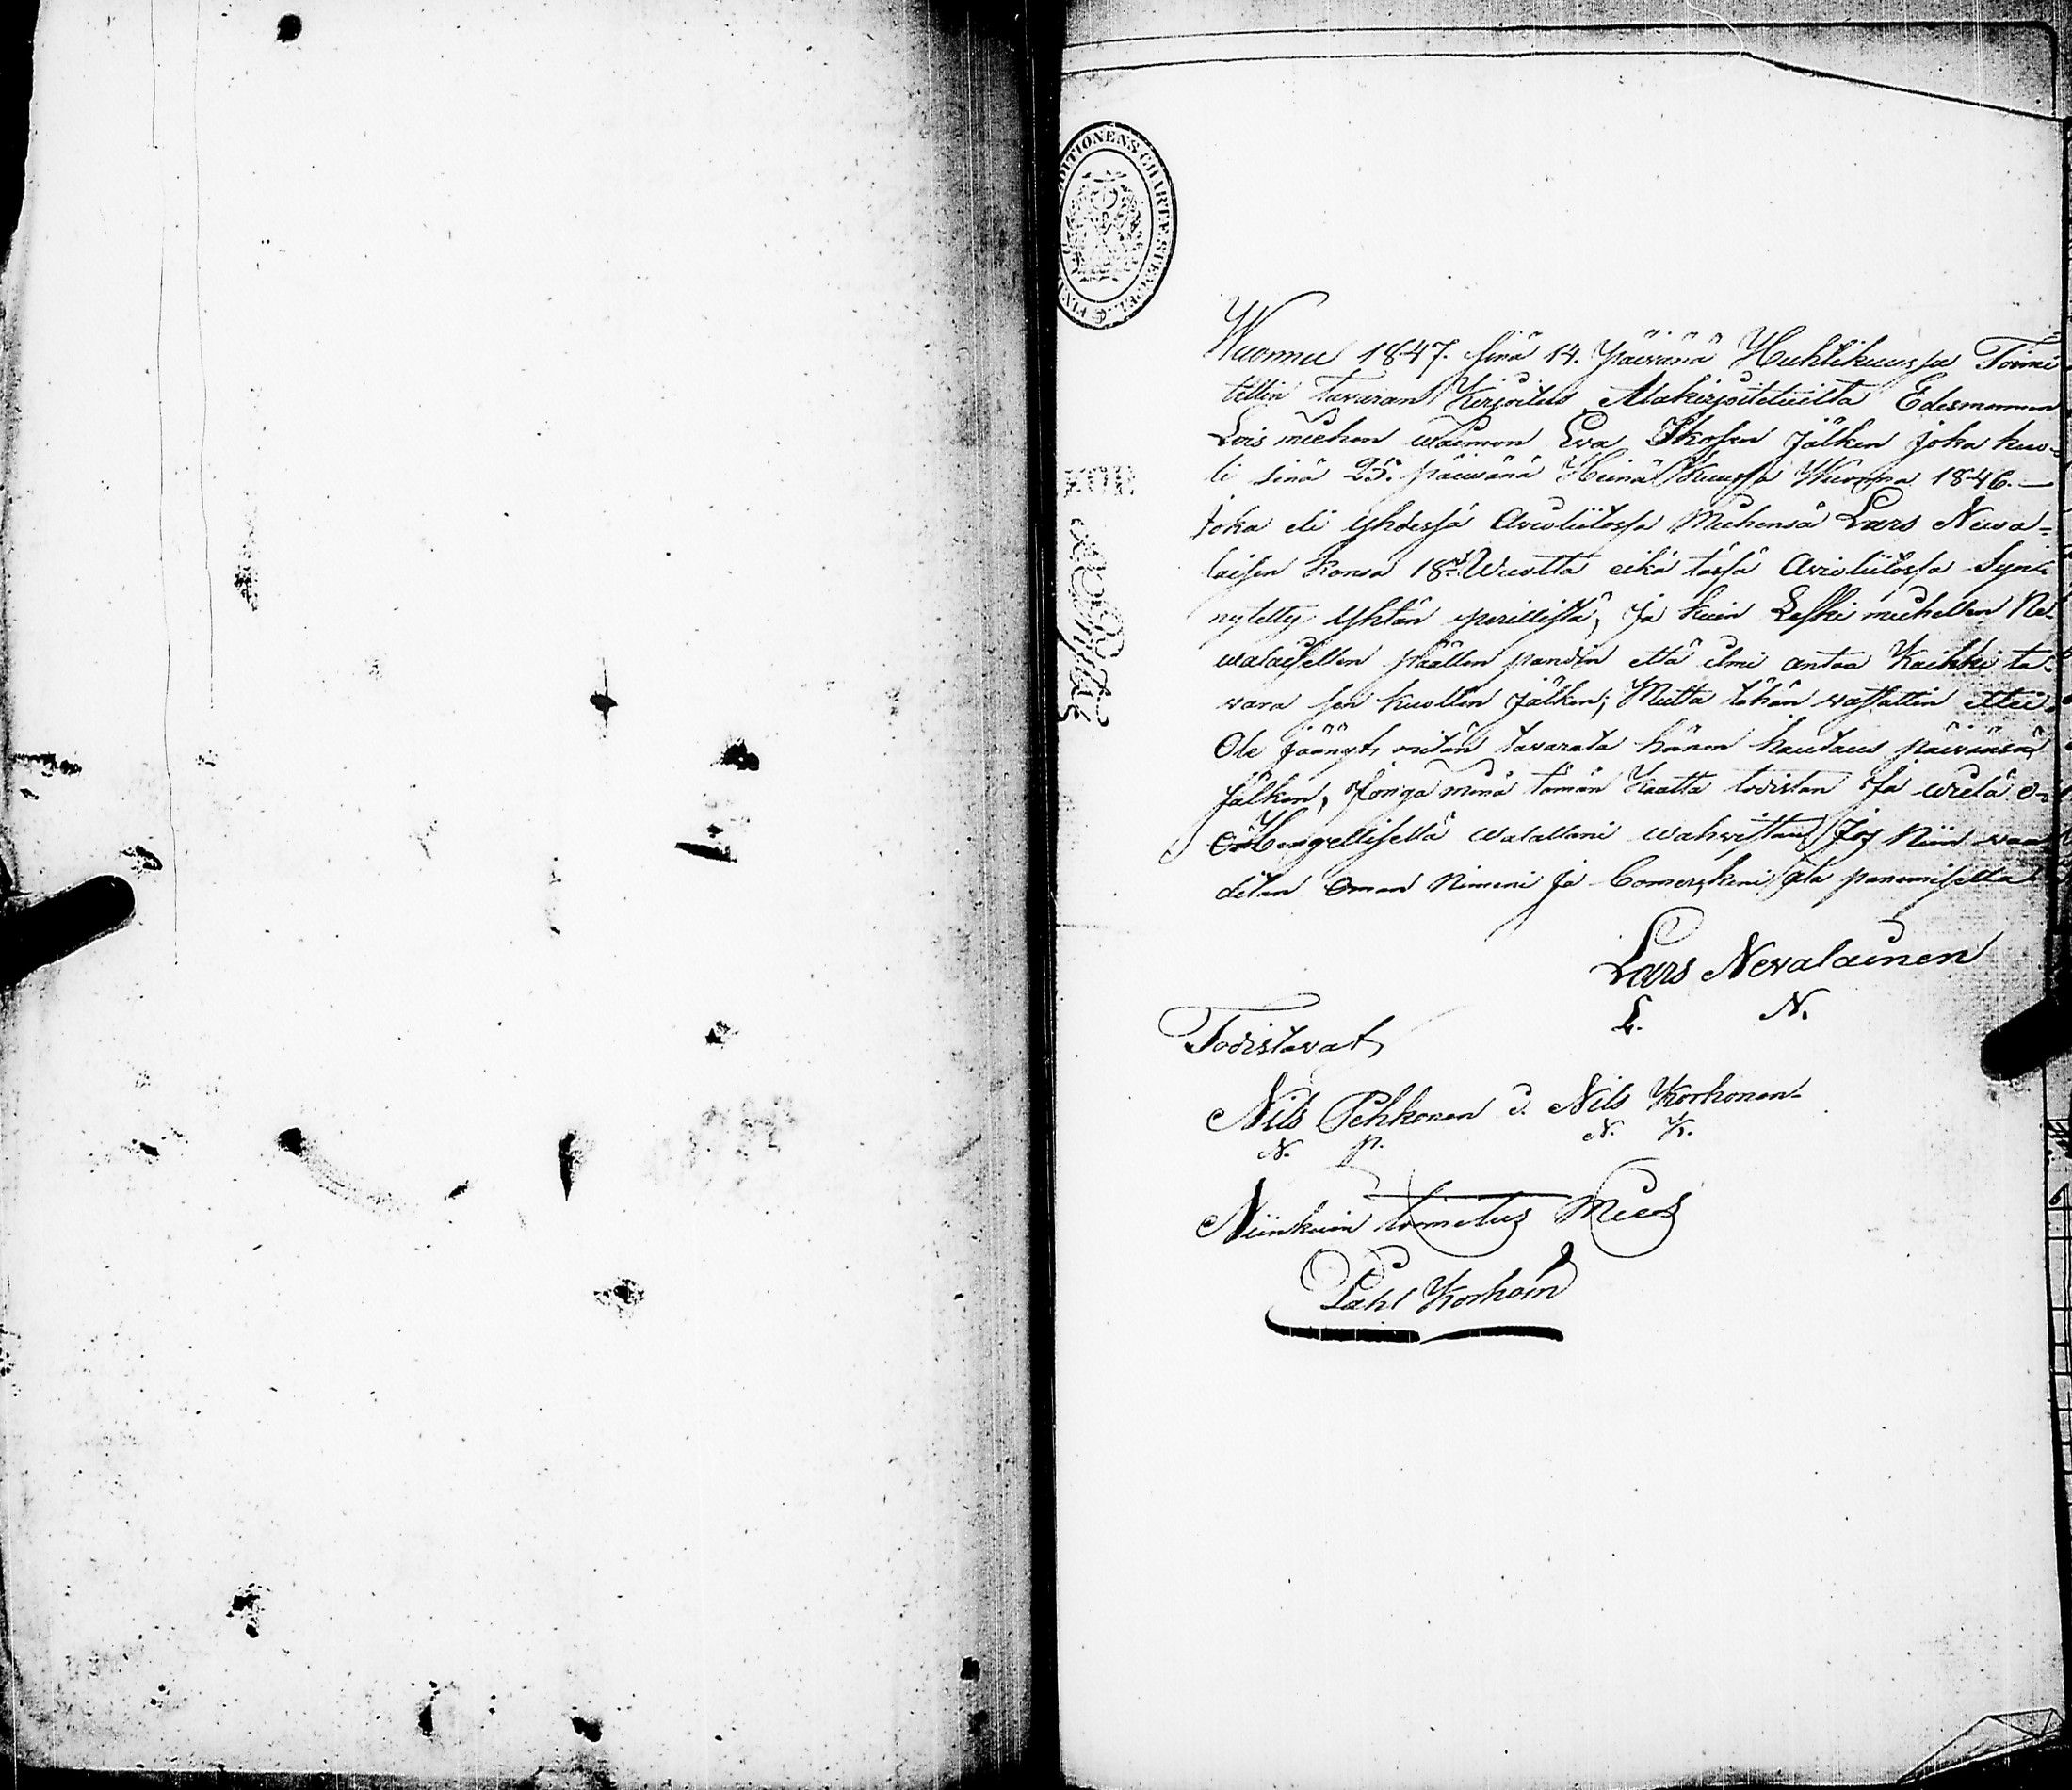 Wuonna 1847. sinä 14. päivänä Huhtikuussa Toimi
tettin Tavaran Kirjoitus Alakirjoitetuilta Edesmennen
Lois miehen waimon Eva Ikosen Jälken joka kuo-
li sinä 25. päivänä Heinä Kuussa Wuonna 1846.—
Joka eli yhdessä Avioliitossa Miehensä Lars Newa-
laisen Kansa 18. Wuotta eikä tässä Avioliitossa Syn-
nytetty yhtän perillistä, Ja kuin Leski miehellen Ne-
walaisellen päällen pandin että ilmi antaa Kaikki ta-
vara sen kuollen Jälken; Mutta tähän vastattin ettei
Ole jäänyt mitän tavarata hänen hautaus päivänsä
Jälken, Jonga minä tämän Kautta todistan Ja wielä
Hengellisellä walallani wahvistan Jos Niin vaa
ditan Oman Nimeni Ja Comerkkini ala panemisella
Lars Nevalainen
L. N.
Todistavat
Nils Pehkonen & Nils Korhonen
N. P. N. K.
Niinkuin toimetus Mies
Påhl Korhoin
FINL. EXPEDITIONENS CHARTÆ STEMPEL.